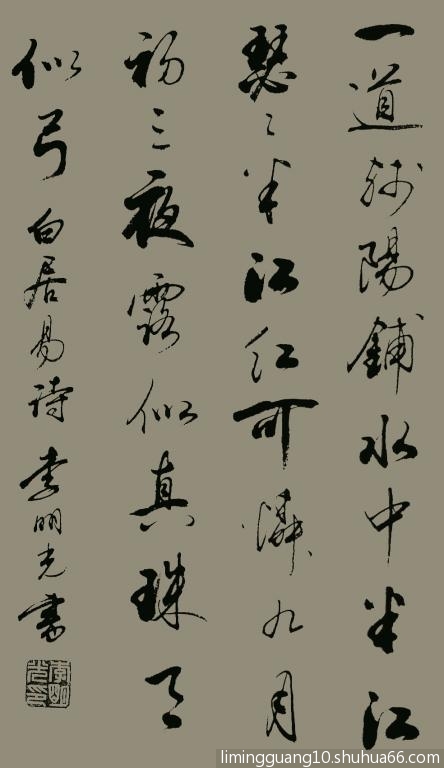 一道残陽鋪水中半江
瑟々半江红可憐九月
初三夜露似真珠月
似弓 白居易诗 李明光書
李明光印
limingguang10.shuhua66.com